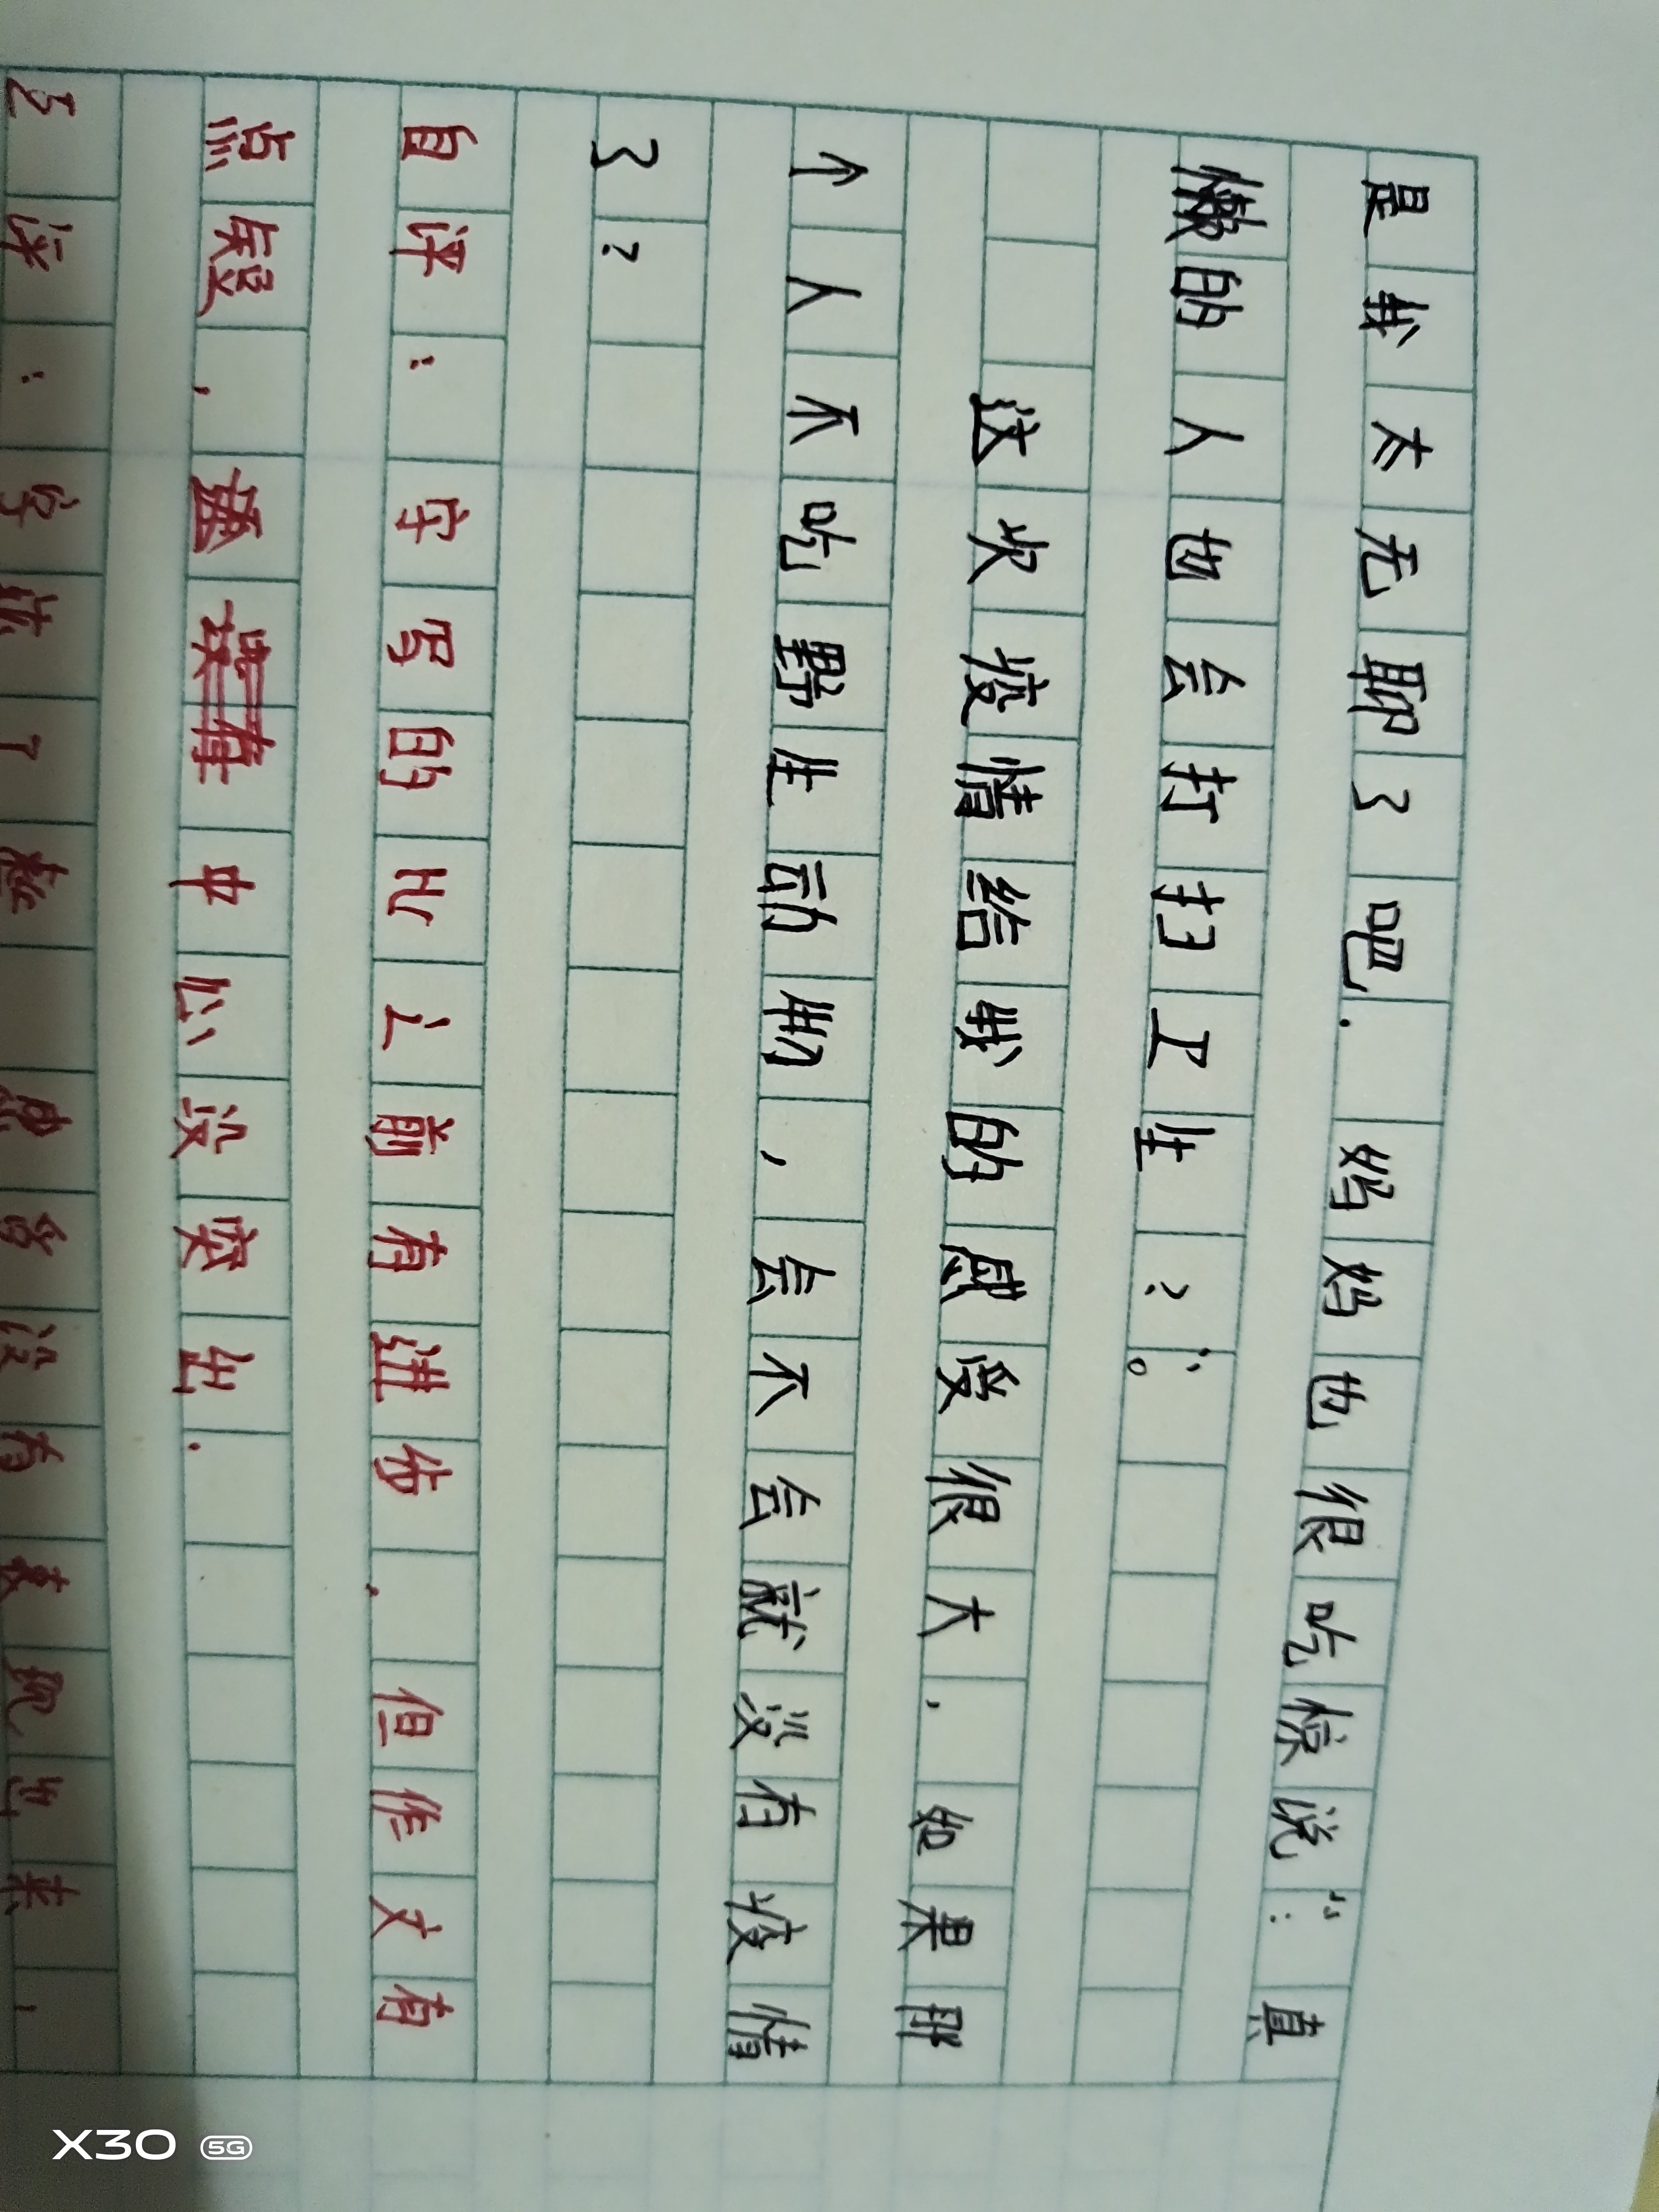 是我太无聊了吧.妈妈也很吃惊说“:真
懒的人也会打扫卫生?”。
这次疫情给我的感受很大,如果那
个人不吃野生动物,会不会就没有疫情
了?
自评:字写的比上前有进步.但作文有
点短,中心没突出.
评:字 了 没有表现出来,
X30 5G